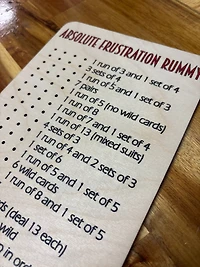 ABSOLUTE FRUSTRATION RUMMY
1 run of 3 and 1 set of 4
3 sets of 4
1 run of 5 and 1 set of 3
pairs
1 run of 5 (no wild cards)
1 run of 8
1 run of 7 and 1 set of 4
1 run of 13 (mixed suits)
sets of 3
1 run of 4 and 2 sets of 3
1 set of 6
1 run of 5 and 1 set of 5
6 wild cards
1 run of 8 and 1 set of 5
(deal 13 each)
wild
in